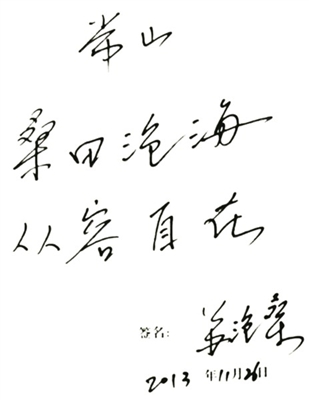 常山
桑田沧海
从容自在
签名: 苏沧桑
2013年11月26日